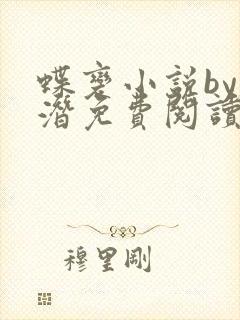 蝶变小说by
潜免費閱讀
穆里剛